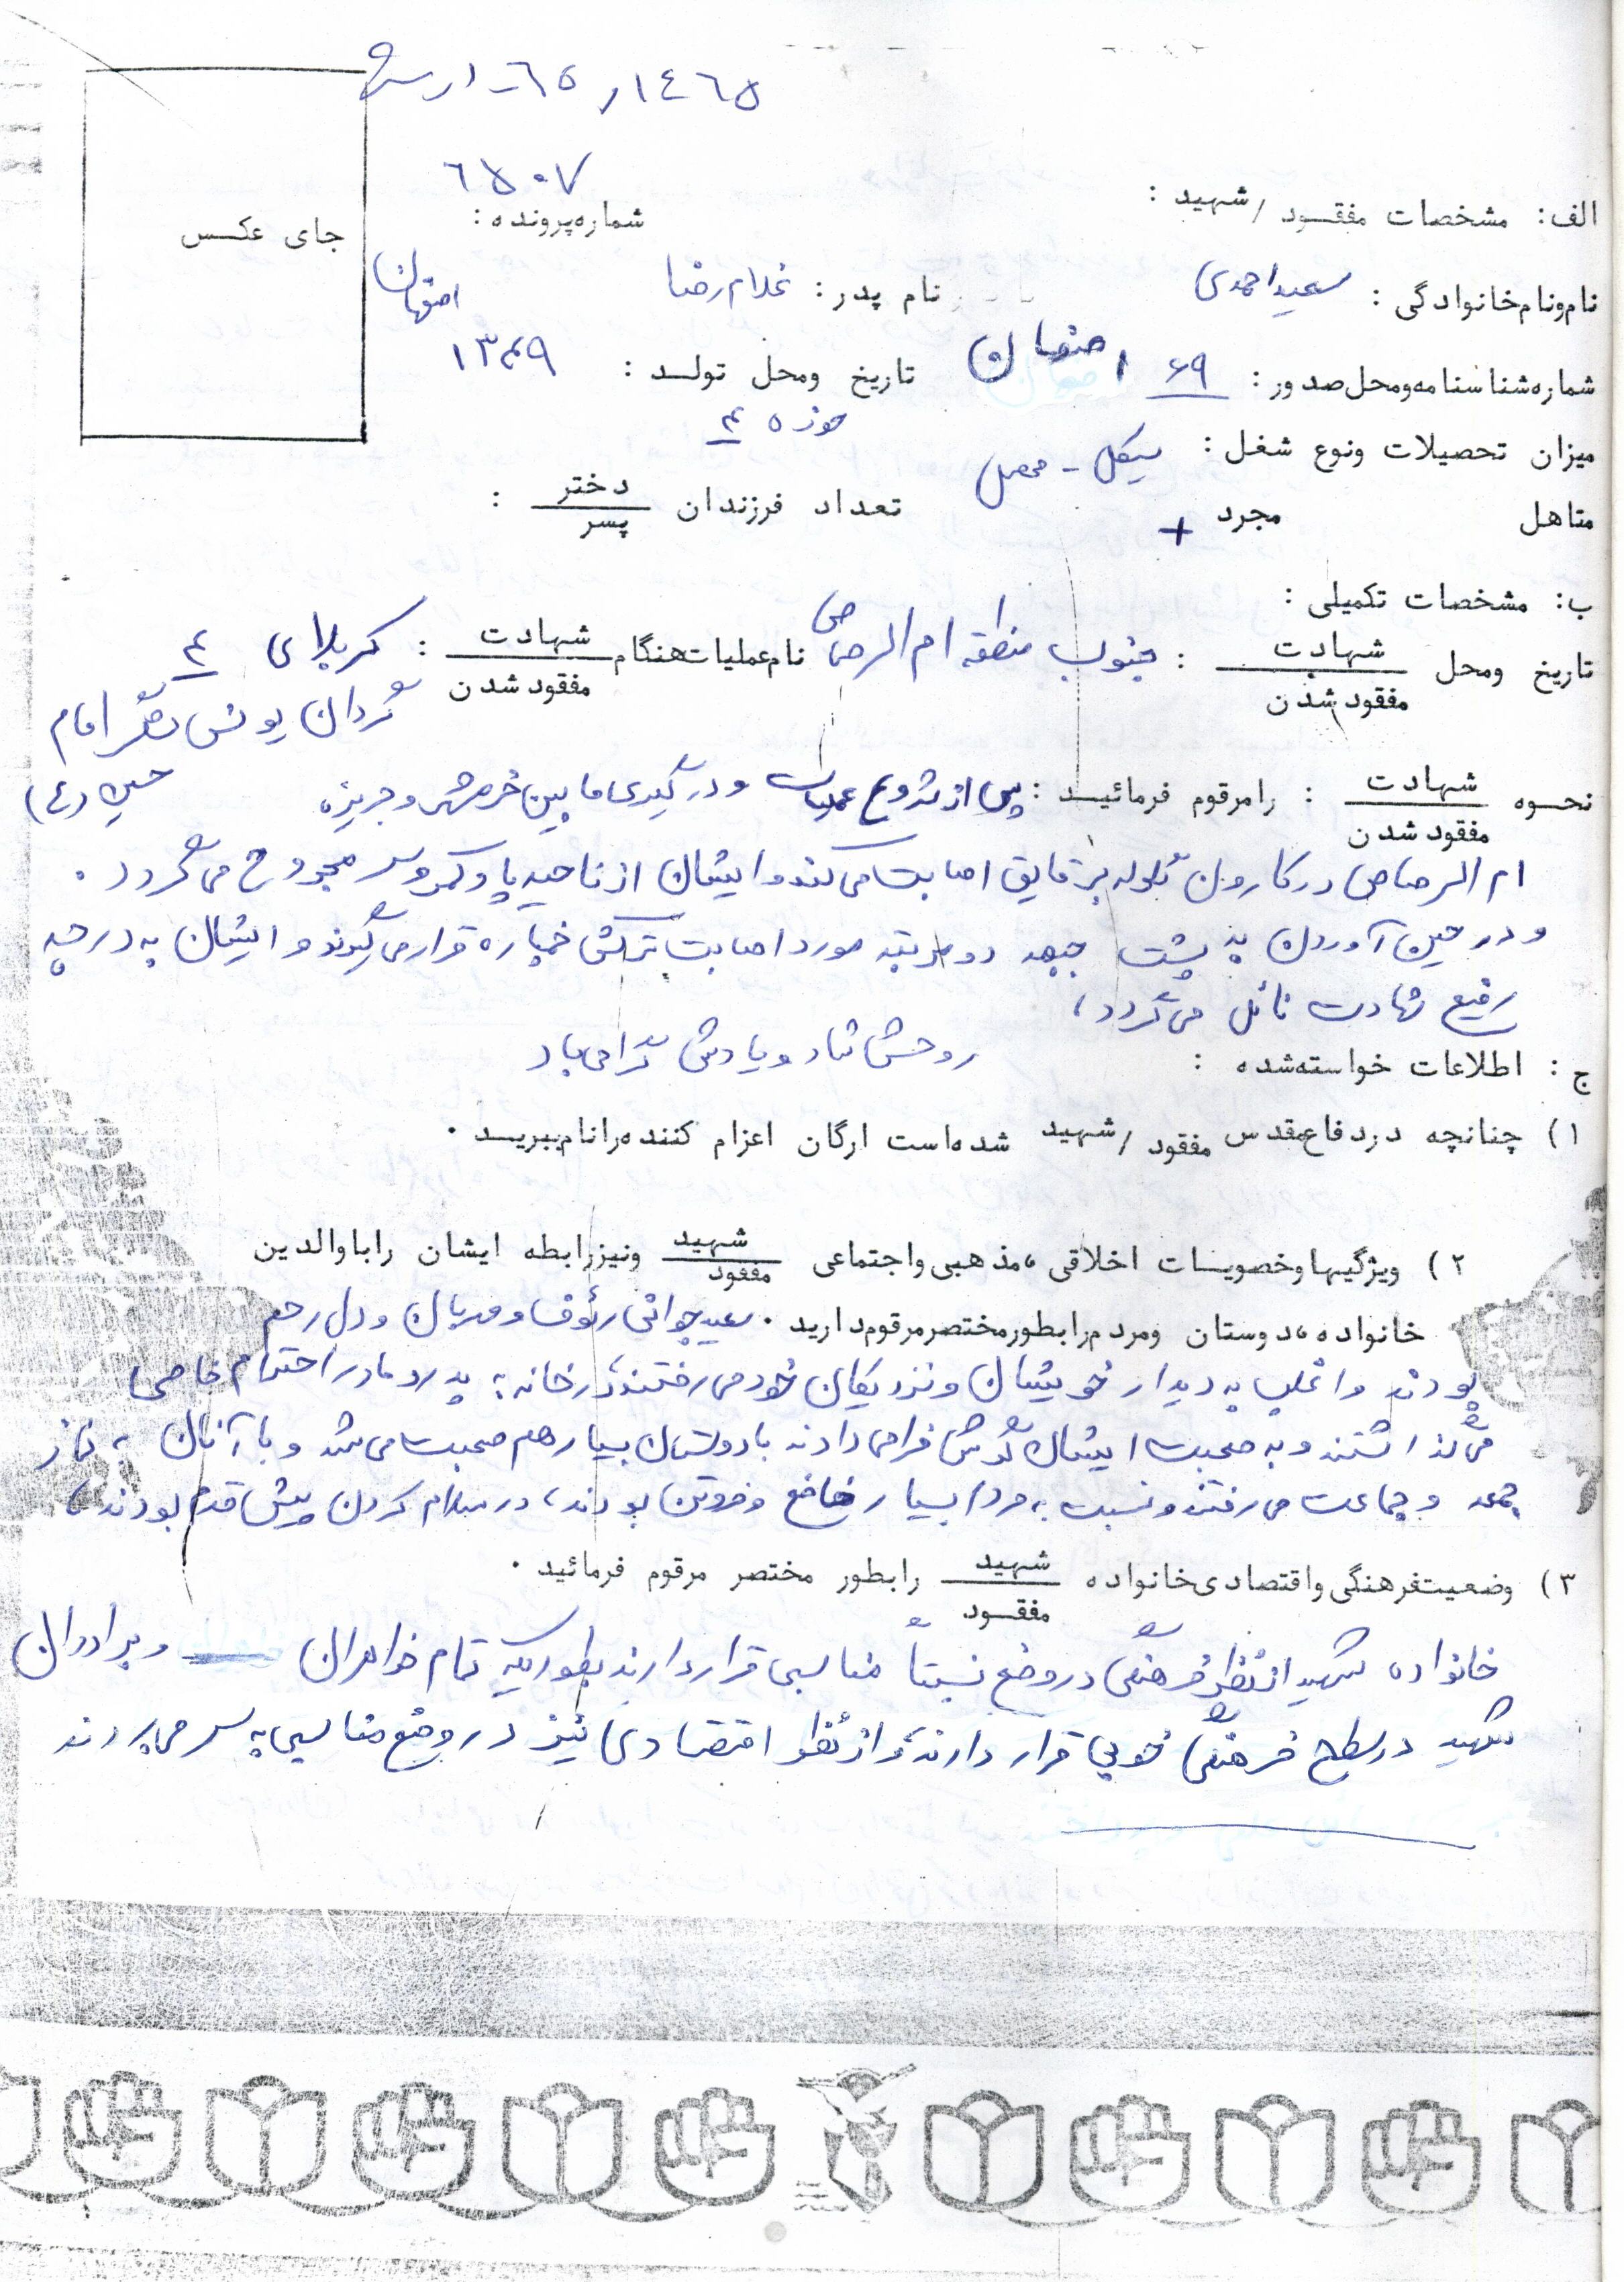 ۱۴۶۵ر
۶۵۰۷
الف: مشخصات مفقود/شهید :
شماره پرونده :
جای عکس
نام و نام خانوادگی : سعید احمدی نام پدر : غلامرضا اصفهان
شماره شناسنامه و محل صدور : ۶۹ اصفهان تاریخ و محل تولد : ۱۳۴۹
حوزه ۴
میزان تحصیلات و نوع شغل : سیکل - محصل
متاهل مجرد + تعداد فرزندان دختر/پسر :
ب: مشخصات تکمیلی :
تاریخ و محل شهادت/مفقود شدن : جنوب منطقه ام الرصاص نام عملیات هنگام شهادت/مفقود شدن : کربلای ۴
گردان یونس لشکر امام
حسین (ع)
نحوه شهادت/مفقود شدن : را مرقوم فرمائید : پس از شروع عملیات و درگیری ما بین خرمشهر و جزیزه
ام الرصاص در کارون گلوله بر قایق اصابت می کند و ایشان از ناحیه پا و کمر و سر مجروح می گردد .
و در حین آوردن به پشت جبهه دو مرتبه مورد اصابت ترکش خمپاره قرار می گیرند و ایشان به درجه
رفیع شهادت نائل می گردد ،
روحش شاد و یادش گرامی باد
ج : اطلاعات خواسته شده :
۱) چنانچه در دفاع مقدس مفقود/شهید شده است ارگان اعزام کننده را نام ببرید .
۲) ویژگیها و خصویسات اخلاقی ، مذهبی و اجتماعی شهید/مفقود و نیز رابطه ایشان را با والدین
خانواده ، دوستان و مردم را بطور مختصر مرقوم دارید . سعید جوانی رئوف و مهربان و دل رحم
بودند و اغلب به دیدار خویشان و نزدیکان خود می رفتند، در خانه به پدر و مادر احترام خاصی
می گذاشتند و به صحبت ایشان گوش فرا می دادند با دوستان بسیار هم صحبت می شد و با آنان ، نماز
جمعه و جماعت می رفتند و نسبت به مردم بسیار خاضع و فروتن بودند، در سلام کردن پیش قدم بودند ،
۳) وضعیت فرهنگی و اقتصادی خانواده شهید/مفقود را بطور مختصر مرقوم فرمائید .
خانواده شهید از نظر فرهنگی در وضع نسبتاً مناسبی قرار دارند بطوریکه تمام خواهران و برادران
شهید در سطح فرهنگی خوبی قرار دارند، و از نظر اقتصادی نیز در وضع مناسبی به سر می برند